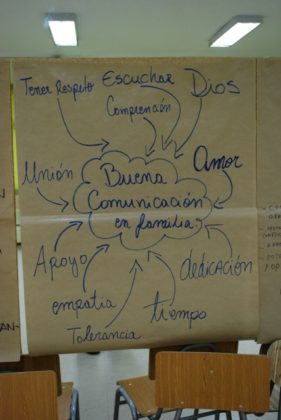 Tener Respeto
Escuchar
Dios
Comprención
Unión
Amor
Buena
Comunicación
en familia.
Apoyo
dedicación
empatia
tiempo
Tolerancia